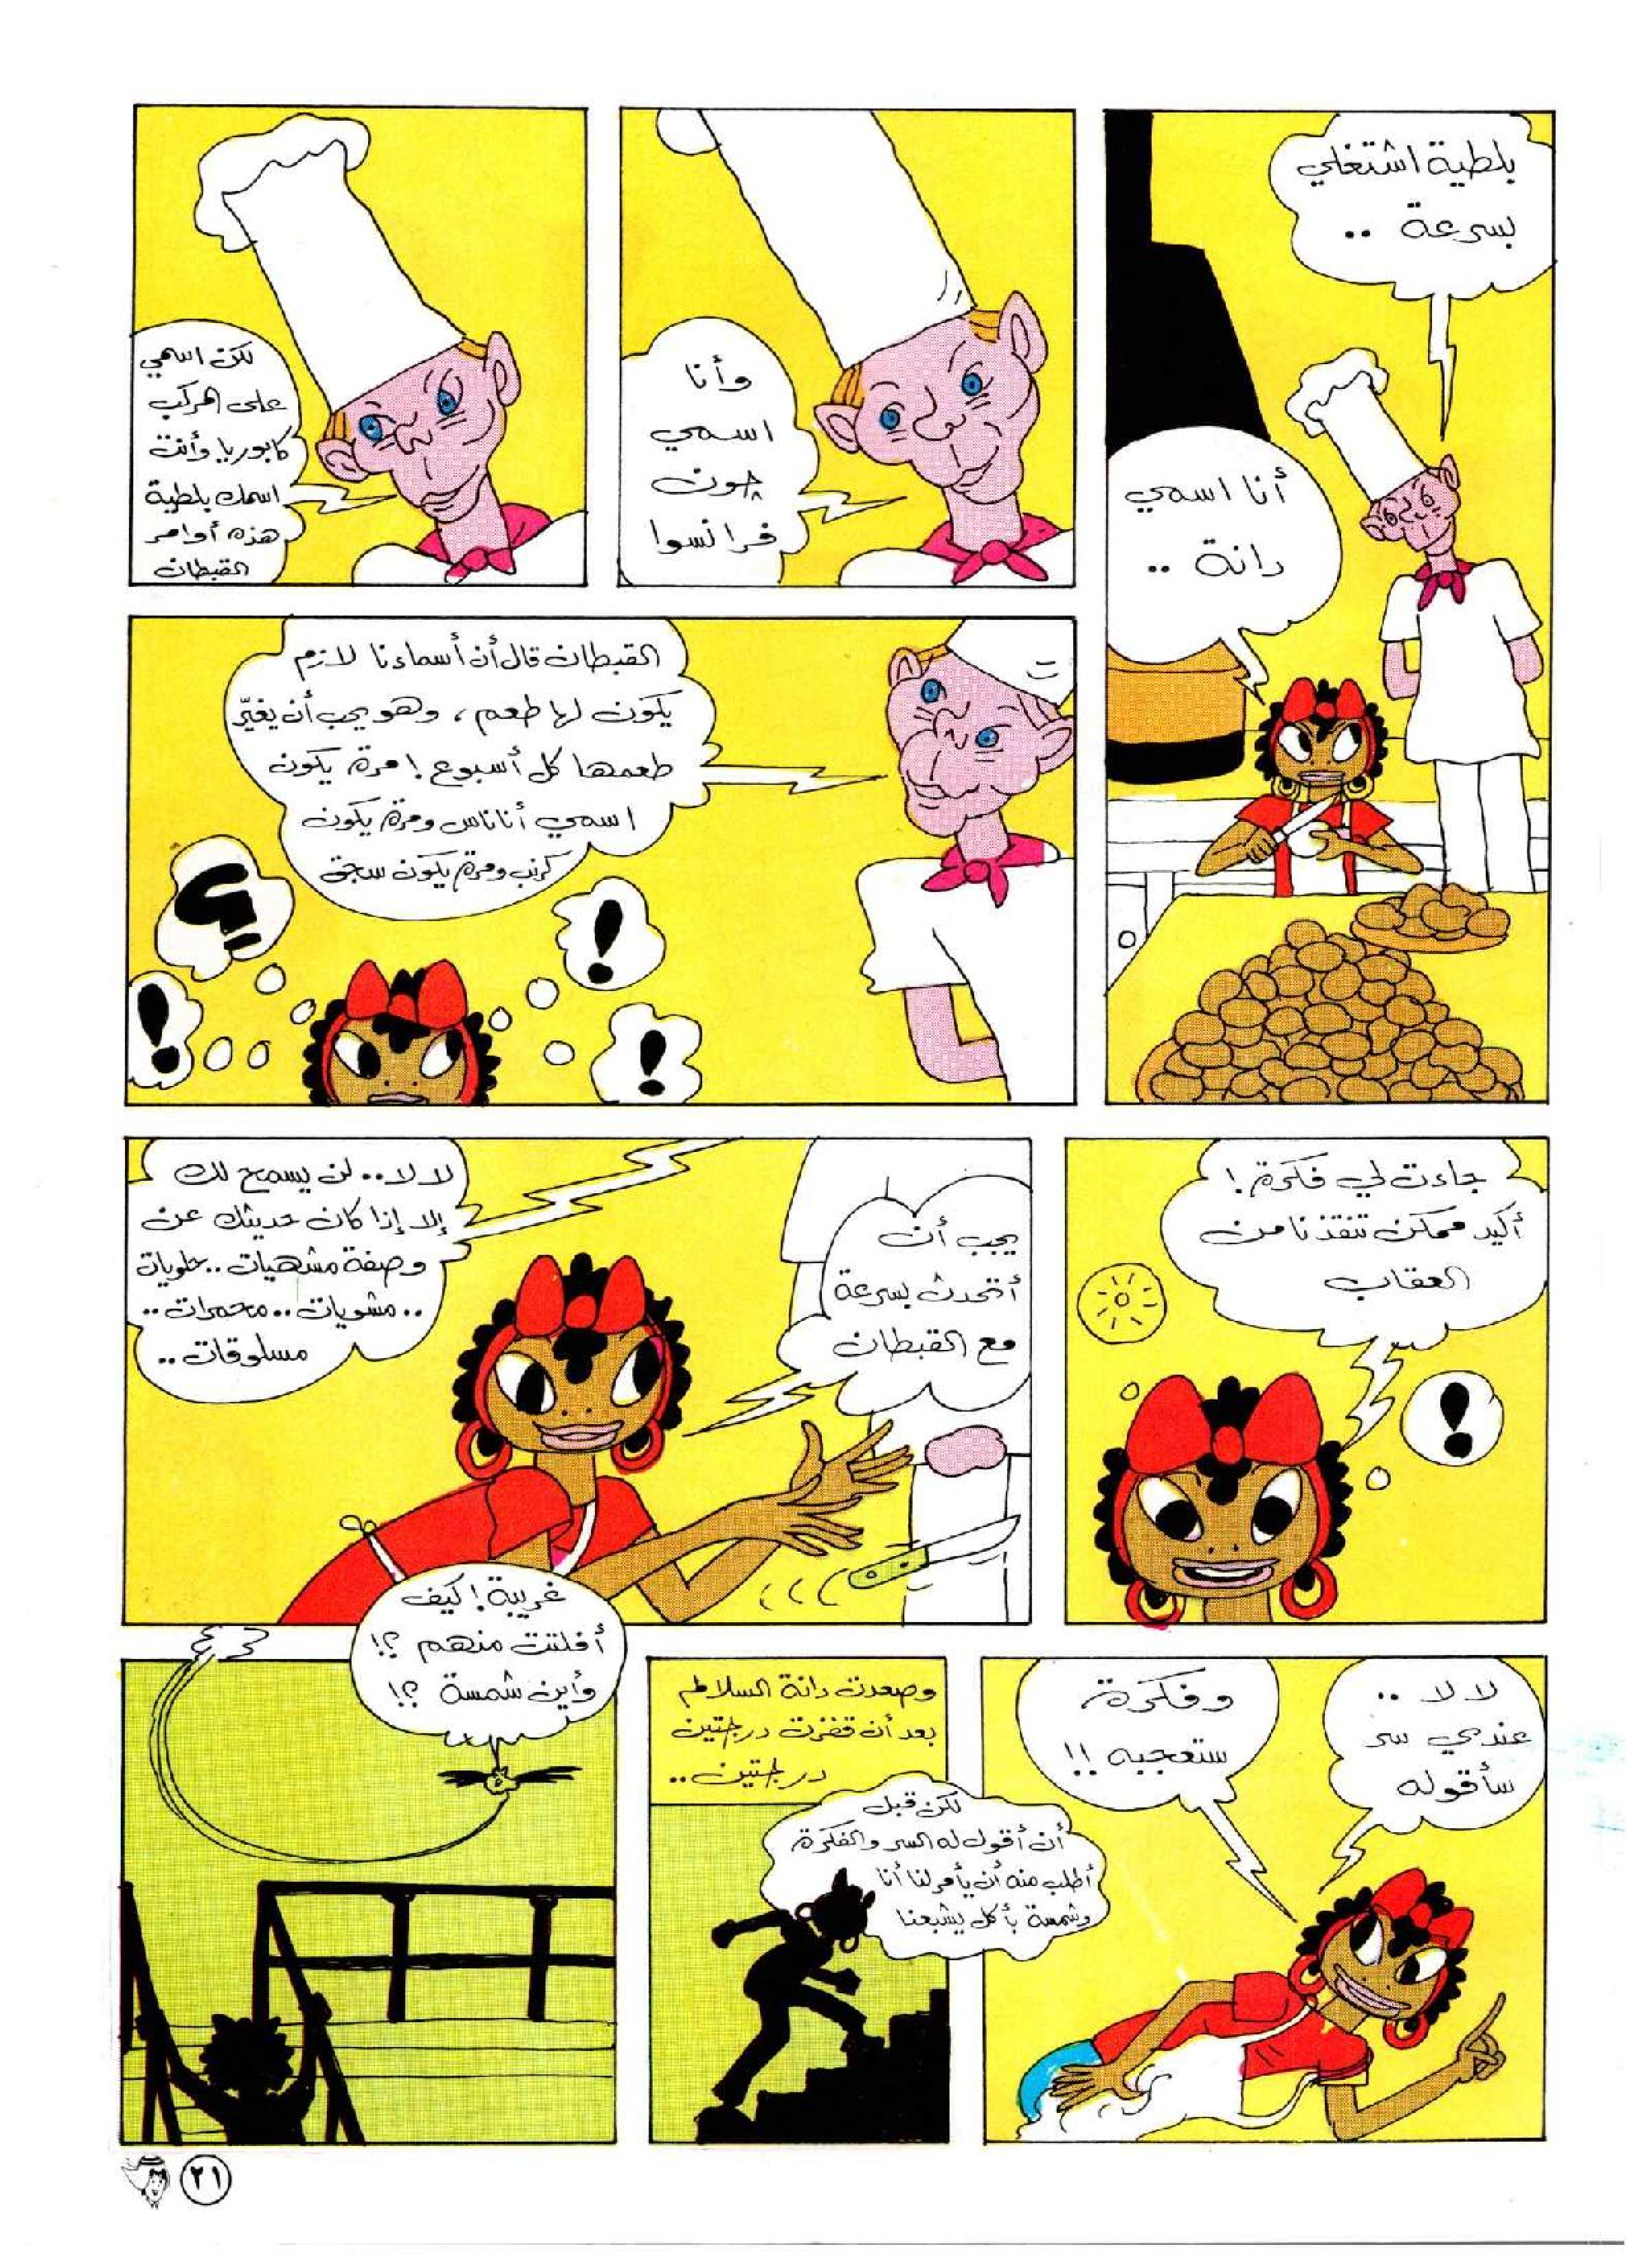 بلطية اشتغلي
بسرعة ..
أنا اسمي
دانة ..
وأنا
اسمي
چون
فرانسوا
لكن اسمي
على المركب
كابوريا وأنت
اسمك بلطية
هذه أوامر
القبطان
القبطان قال أن أسماءنا لازم
يكون لها طعم ، وهو يحب أن يغيّر
طعمها كل أسبوع ! مرة يكون
اسمي أناناس ومرة يكون
كرنب ومرة يكون سجق
؟!
!
!
!
جاءت لي فكرة !
أكيد ممكن تنقذنا من
العقاب
!
يجب أن
أتحدث بسرعة
مع القبطان
لا لا .. لن يسمح لك
إلا إذا كان حديثك عن
وصفة مشهيات .. حلويات
.. مشويات .. محمرات ..
مسلوقات ..
لا لا ..
عندي سر
سأقوله
وفكرة
ستعجبه !!
وصعدت دانة السلالم
بعد أن قفزت درجتين
درجتين ..
لكن قبل
أن أقول له السر والفكرة
أطلب منه أن يأمر لنا أنا
وشمسة بأكل يشبعنا
غريبة ! كيف
أفلتت منهم ؟!
وأين شمسة ؟!
٢١